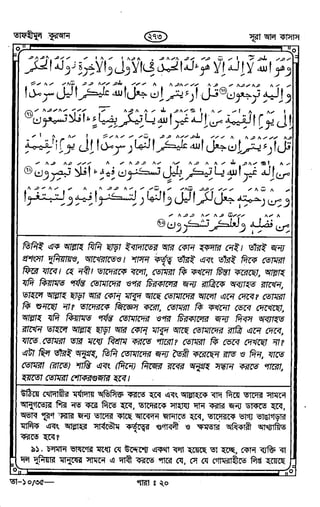 তাফহীমুল কুরআন ২৭৩ সূরা আল কাসাস
وَهُوَ اللهُ لَا إِلٰهَ إِلَّا هُوَ لَهُ الْحَمْدُ فِي الْأُولٰى وَالْآخِرَةِ وَلَهُ الْحُكْمُ
وَإِلَيْهِ تُرْجَعُونَ قُلْ أَرَءَيْتُمْ إِنْ جَعَلَ اللهُ عَلَيْكُمُ الَّيْلَ سَرْمَدًا
إِلٰى يَوْمِ الْقِيٰمَةِ مَنْ إِلٰهٌ غَيْرُ اللهِ يَأْتِيكُمْ بِضِيَاءٍ أَفَلَا تَسْمَعُونَ
قُلْ أَرَءَيْتُمْ إِنْ جَعَلَ اللهُ عَلَيْكُمُ النَّهَارَ سَرْمَدًا إِلٰى يَوْمِ الْقِيٰمَةِ
مَنْ إِلٰهٌ غَيْرُ اللهِ يَأْتِيكُمْ بِلَيْلٍ تَسْكُنُونَ فِيهِ أَفَلَا تُبْصِرُونَ
وَمِنْ رَحْمَتِهِ جَعَلَ لَكُمُ الَّيْلَ وَالنَّهَارَ لِتَسْكُنُوا فِيهِ وَلِتَبْتَغُوا
مِنْ فَضْلِهِ وَلَعَلَّكُمْ تَشْكُرُونَ
তিনিই এক আল্লাহ যিনি ছাড়া ইবাদাতের আর কোন হকদার নেই। তাঁরই জন্য
প্রশংসা দুনিয়ায়ও, আখেরাতেও। শাসন কর্তৃত্ব তাঁরই এবং তাঁরই দিকে তোমরা
ফিরে যাবে। হে নবী! তাদেরকে বলো, তোমরা কি কখনো চিন্তা করেছো, আল্লাহ
যদি কিয়ামত পর্যন্ত তোমাদের ওপর চিরকালের জন্য রাত্রিকে অব্যাহত রাখেন,
তাহলে আল্লাহ ছাড়া আর কোন্ মাবুদ আছে তোমাদের আলো এনে দেবে? তোমরা
কি শুনছো না? তাদেরকে জিজ্ঞেস করো, তোমরা কি কখনো ভেবে দেখেছো,
আল্লাহ যদি কিয়ামত পর্যন্ত তোমাদের ওপর চিরকালের জন্য দিবস অব্যাহত
রাখেন তাহলে আল্লাহ ছাড়া আর কোন্ মাবুদ আছে তোমাদের রাত্রি এনে দেবে,
যাতে তোমরা তার মধ্যে বিশ্রাম করতে পারো? তোমরা কি ভেবে দেখছো না?
এটা ছিল তাঁরই অনুগ্রহ, তিনি তোমাদের জন্য তৈরী করেছেন রাত ও দিন, যাতে
তোমরা (রাতে) শান্তি এবং (দিনে) নিজের রবের অনুগ্রহ সন্ধান করতে পারো,
হয়তো তোমরা শোকরগুজার হবে।
উঠিয়ে খোদায়ীর মর্যাদায় অভিষিক্ত করতে হবে এবং আল্লাহকে বাদ দিয়ে তাদের সামনে
আনুগত্যের শির নত করে দিতে হবে, তাদেরকে সাহায্য দান করার জন্য ডাকতে হবে,
অভাব পূরণ করার জন্য তাদের কাছে আবেদন জানাতে হবে, তাদেরকে ভাগ্য ভাঙ্গাগড়ার
মালিক এবং আল্লাহর সার্বভৌম কর্তৃত্বের গুণাবলী ও ক্ষমতার অধিকারী আখ্যায়িত
করতে হবে?
৯১. চলমান ভাষণের মধ্যে যে উদ্দেশ্যে একথা বলা হয়েছে তা হচ্ছে, কোন ব্যক্তি বা
দল দুনিয়ার মানুষের সামনে এ দাবী করতে পারে যে, সে যে গোমরাহীতে লিপ্ত হয়েছে
তা-১০/৩৫— পারা : ২০